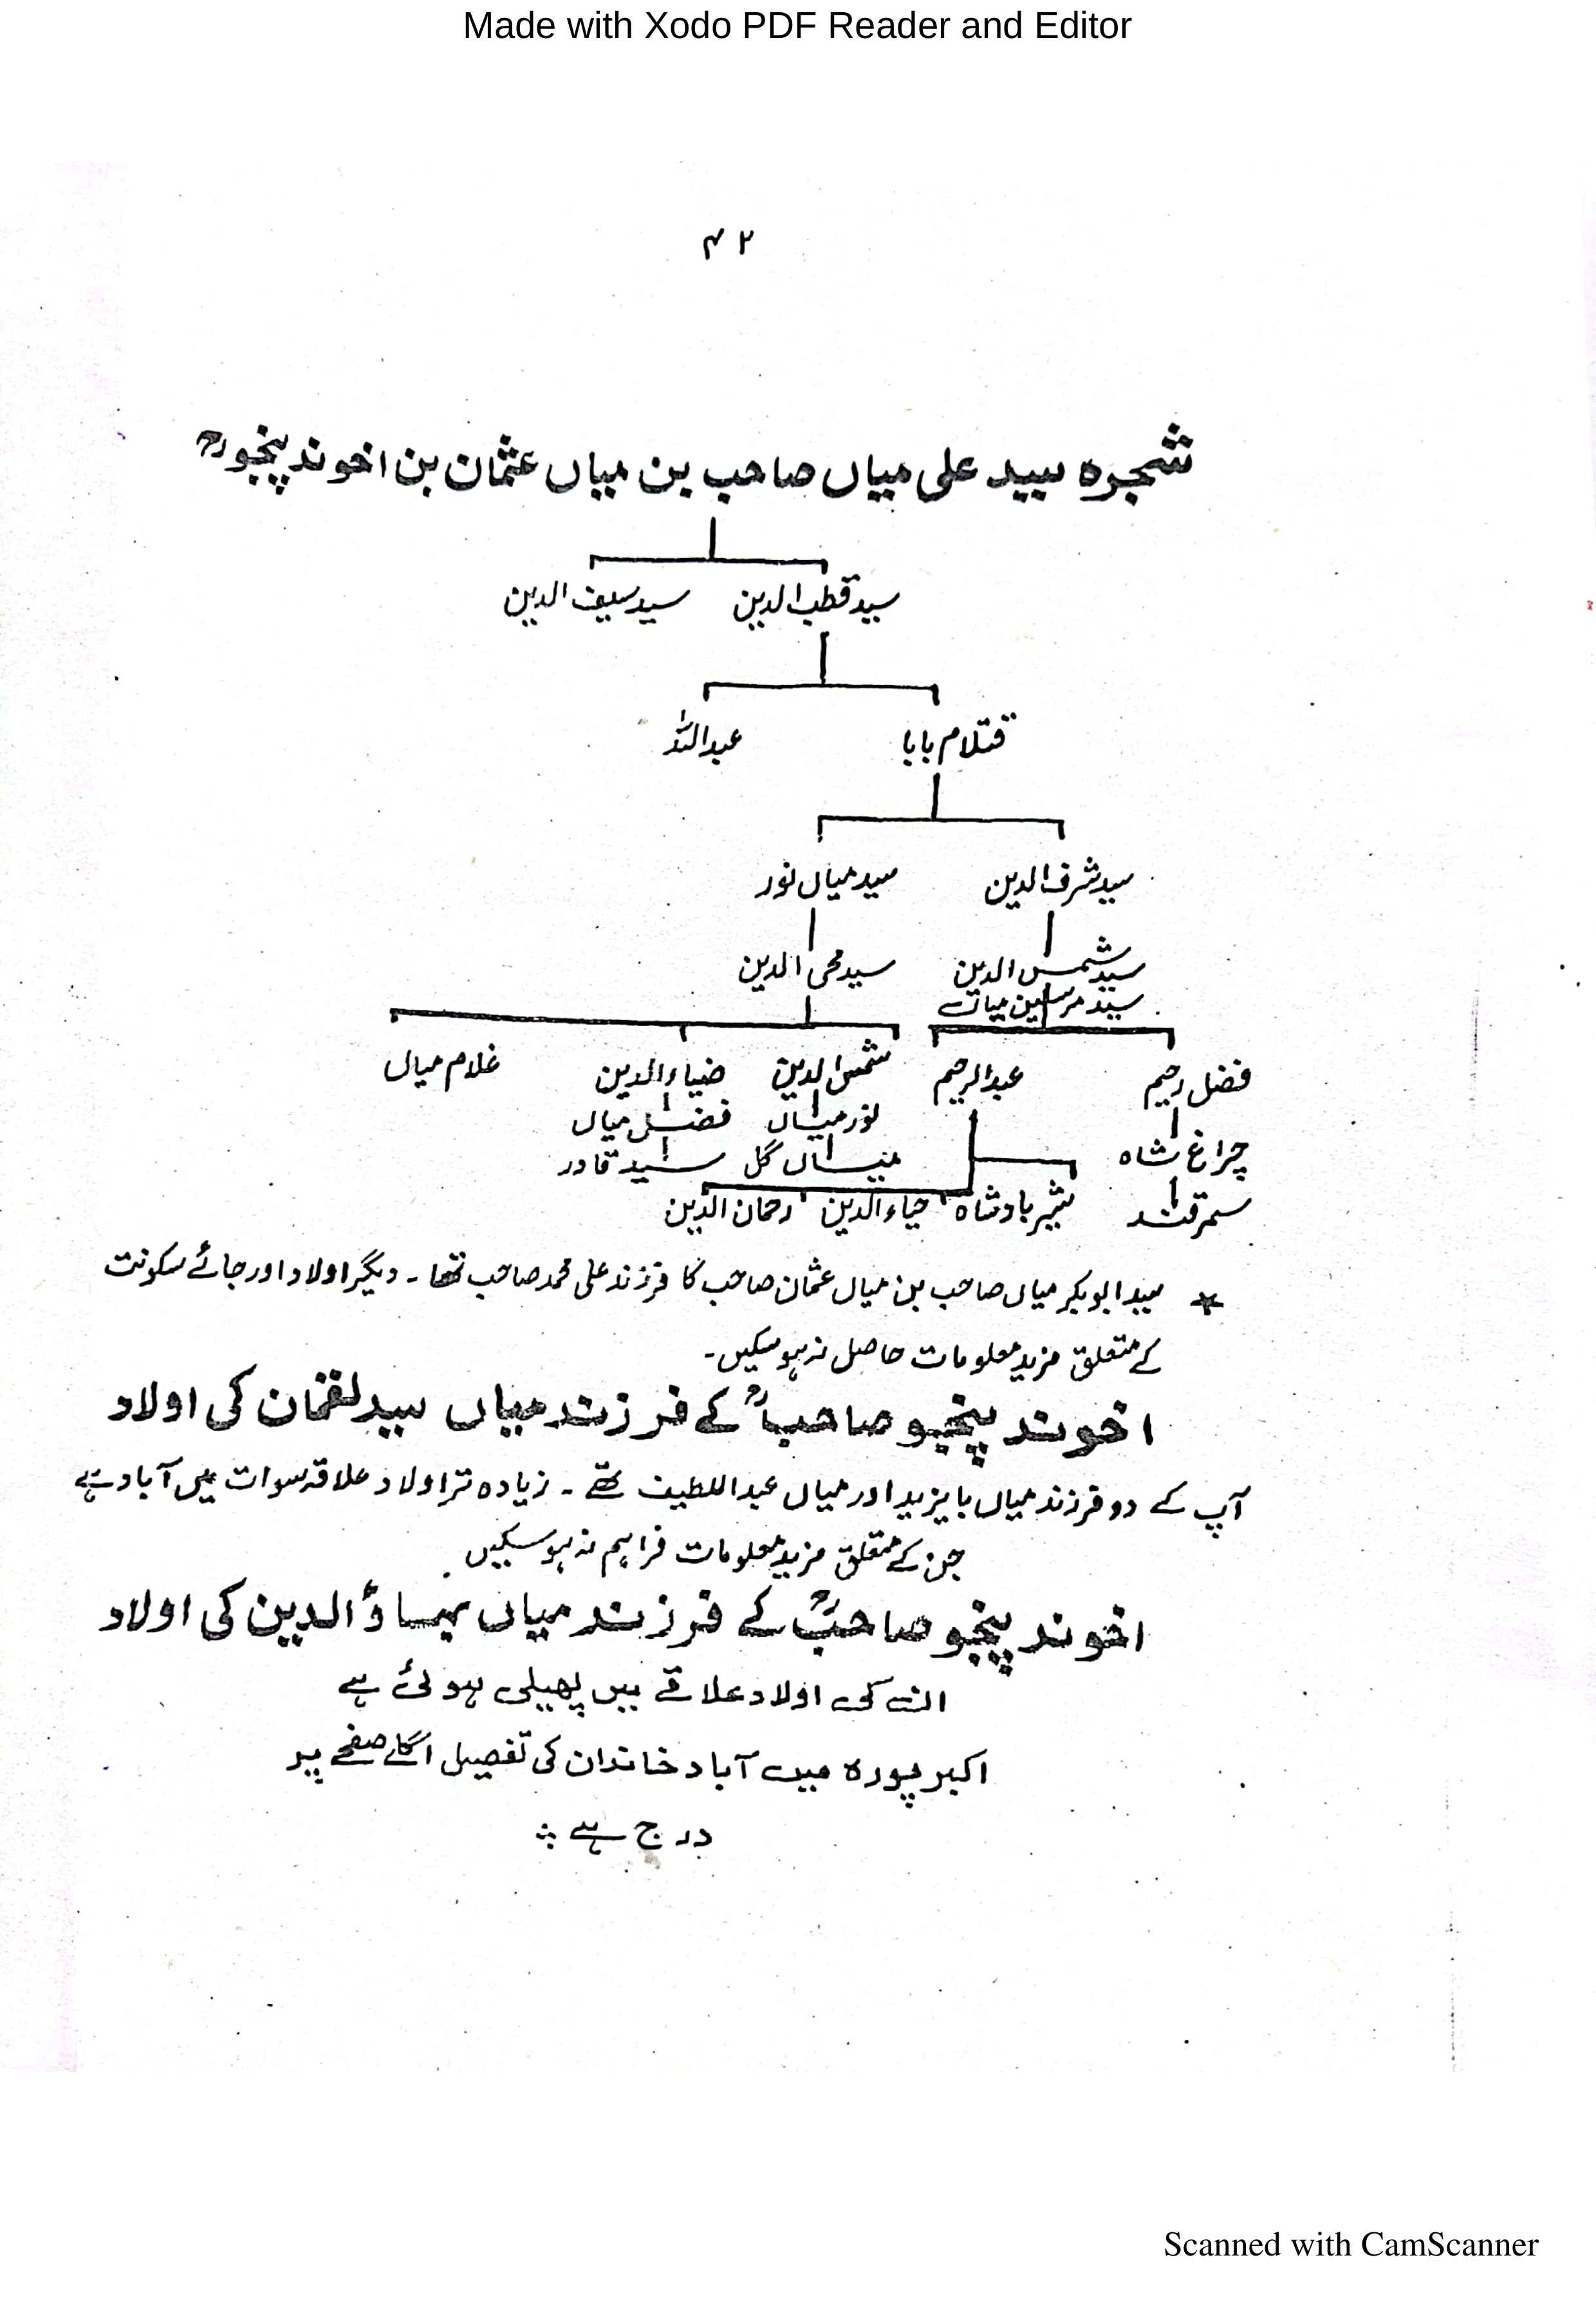 Made with Xodo PDF Reader and Editor
۴۲
شجرہ سید علی میاں صاحب بن میاں عثمان بن اخوند پنجوؒ
سید قطب الدین سید سیف الدین
قتلام بابا عبداللہ
سید شرف الدین سید میاں نور
سید شمس الدین سید محی الدین
سید مرسلین میاں
فضل رحیم عبدالرحیم شمس الدین ضیاء الدین غلام میاں
نور میاں فضل میاں
چراغ شاہ میاں گل سید قادر
سمرقند شیر بادشاہ حیاء الدین رحمان الدین
* سید ابوبکر میاں صاحب بن میاں عثمان صاحب کا فرزند علی محمد صاحب تھا۔ دیگر اولاد اور جائے سکونت
کے متعلق مزید معلومات حاصل نہ ہوسکیں۔
اخوند پنجو صاحبؒ کے فرزند میاں سید لقمان کی اولاد
آپ کے دو فرزند میاں بایزید اور میاں عبداللطیف تھے۔ زیادہ تر اولاد علاقہ سوات میں آباد ہے
جن کے متعلق مزید معلومات فراہم نہ ہوسکیں
اخوند پنجو صاحبؒ کے فرزند میاں بہاؤالدین کی اولاد
ان کی اولاد علاقے میں پھیلی ہوئی ہے
اکبرپورہ میں آباد خاندان کی تفصیل اگلے صفحے پر
درج ہے ؞
Scanned with CamScanner